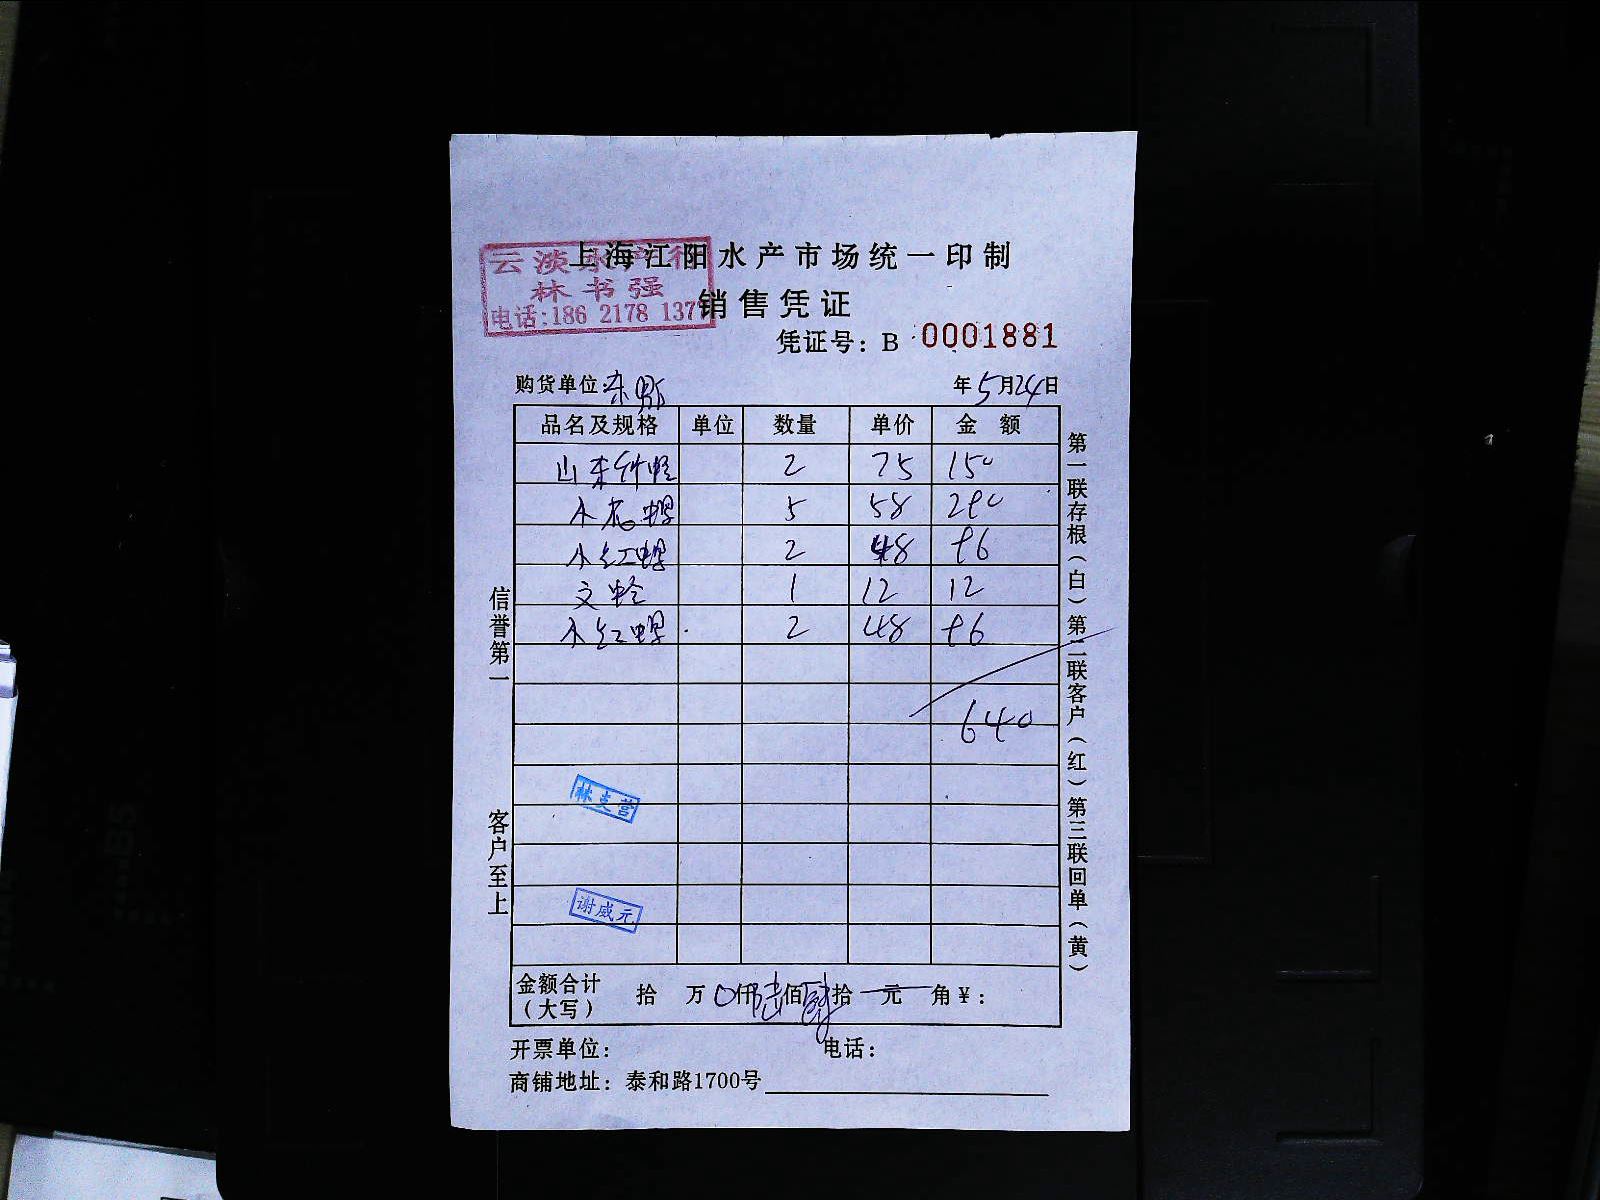 上海江阳水产市场统一印制
云淡水产行
林书强
电话:186 2178 137
销售凭证
凭证号: B 0001881
购货单位:
年5月24日
品名及规格 单位 数量 单价 金 额
山东竹蛏 2 75 150
小花螺 5 58 290
小红螺 2 48 96
文蛤 1 12 12
小红螺 2 48 96
640
林支营
谢威元
金额合计
(大写) 拾 万 0仟陆佰肆拾 元 角¥:
开票单位: 电话:
商铺地址: 泰和路1700号
信誉第一 客户至上
第一联存根(白)第二联客户(红)第三联回单(黄)